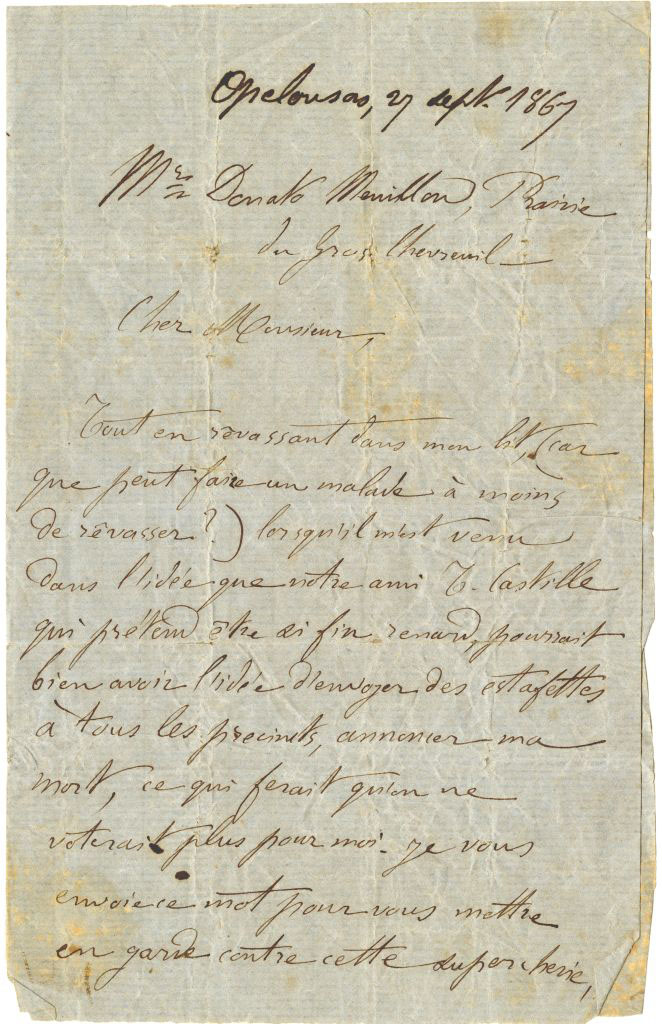 Opelousas, 27 sept. 1867
Mr Donato Meuillon, Prairie
du Gros Chevreuil_
Cher Monsieur,
Tout en rêvassant dans mon lit, (car
que peut faire un malade à moins
de rêvasser?) lorsqu'il m'est venu
dans l'idée que notre ami T. Castille
qui prétend être si fin renard, pourrait
bien avoir l'idée d'envoyer des estafettes
à tous les precincts, annoncer ma
mort, ce qui ferait qu'on ne
voterait plus pour moi. Je vous
envoie ce mot pour vous mettre
en garde contre cette supercherie,